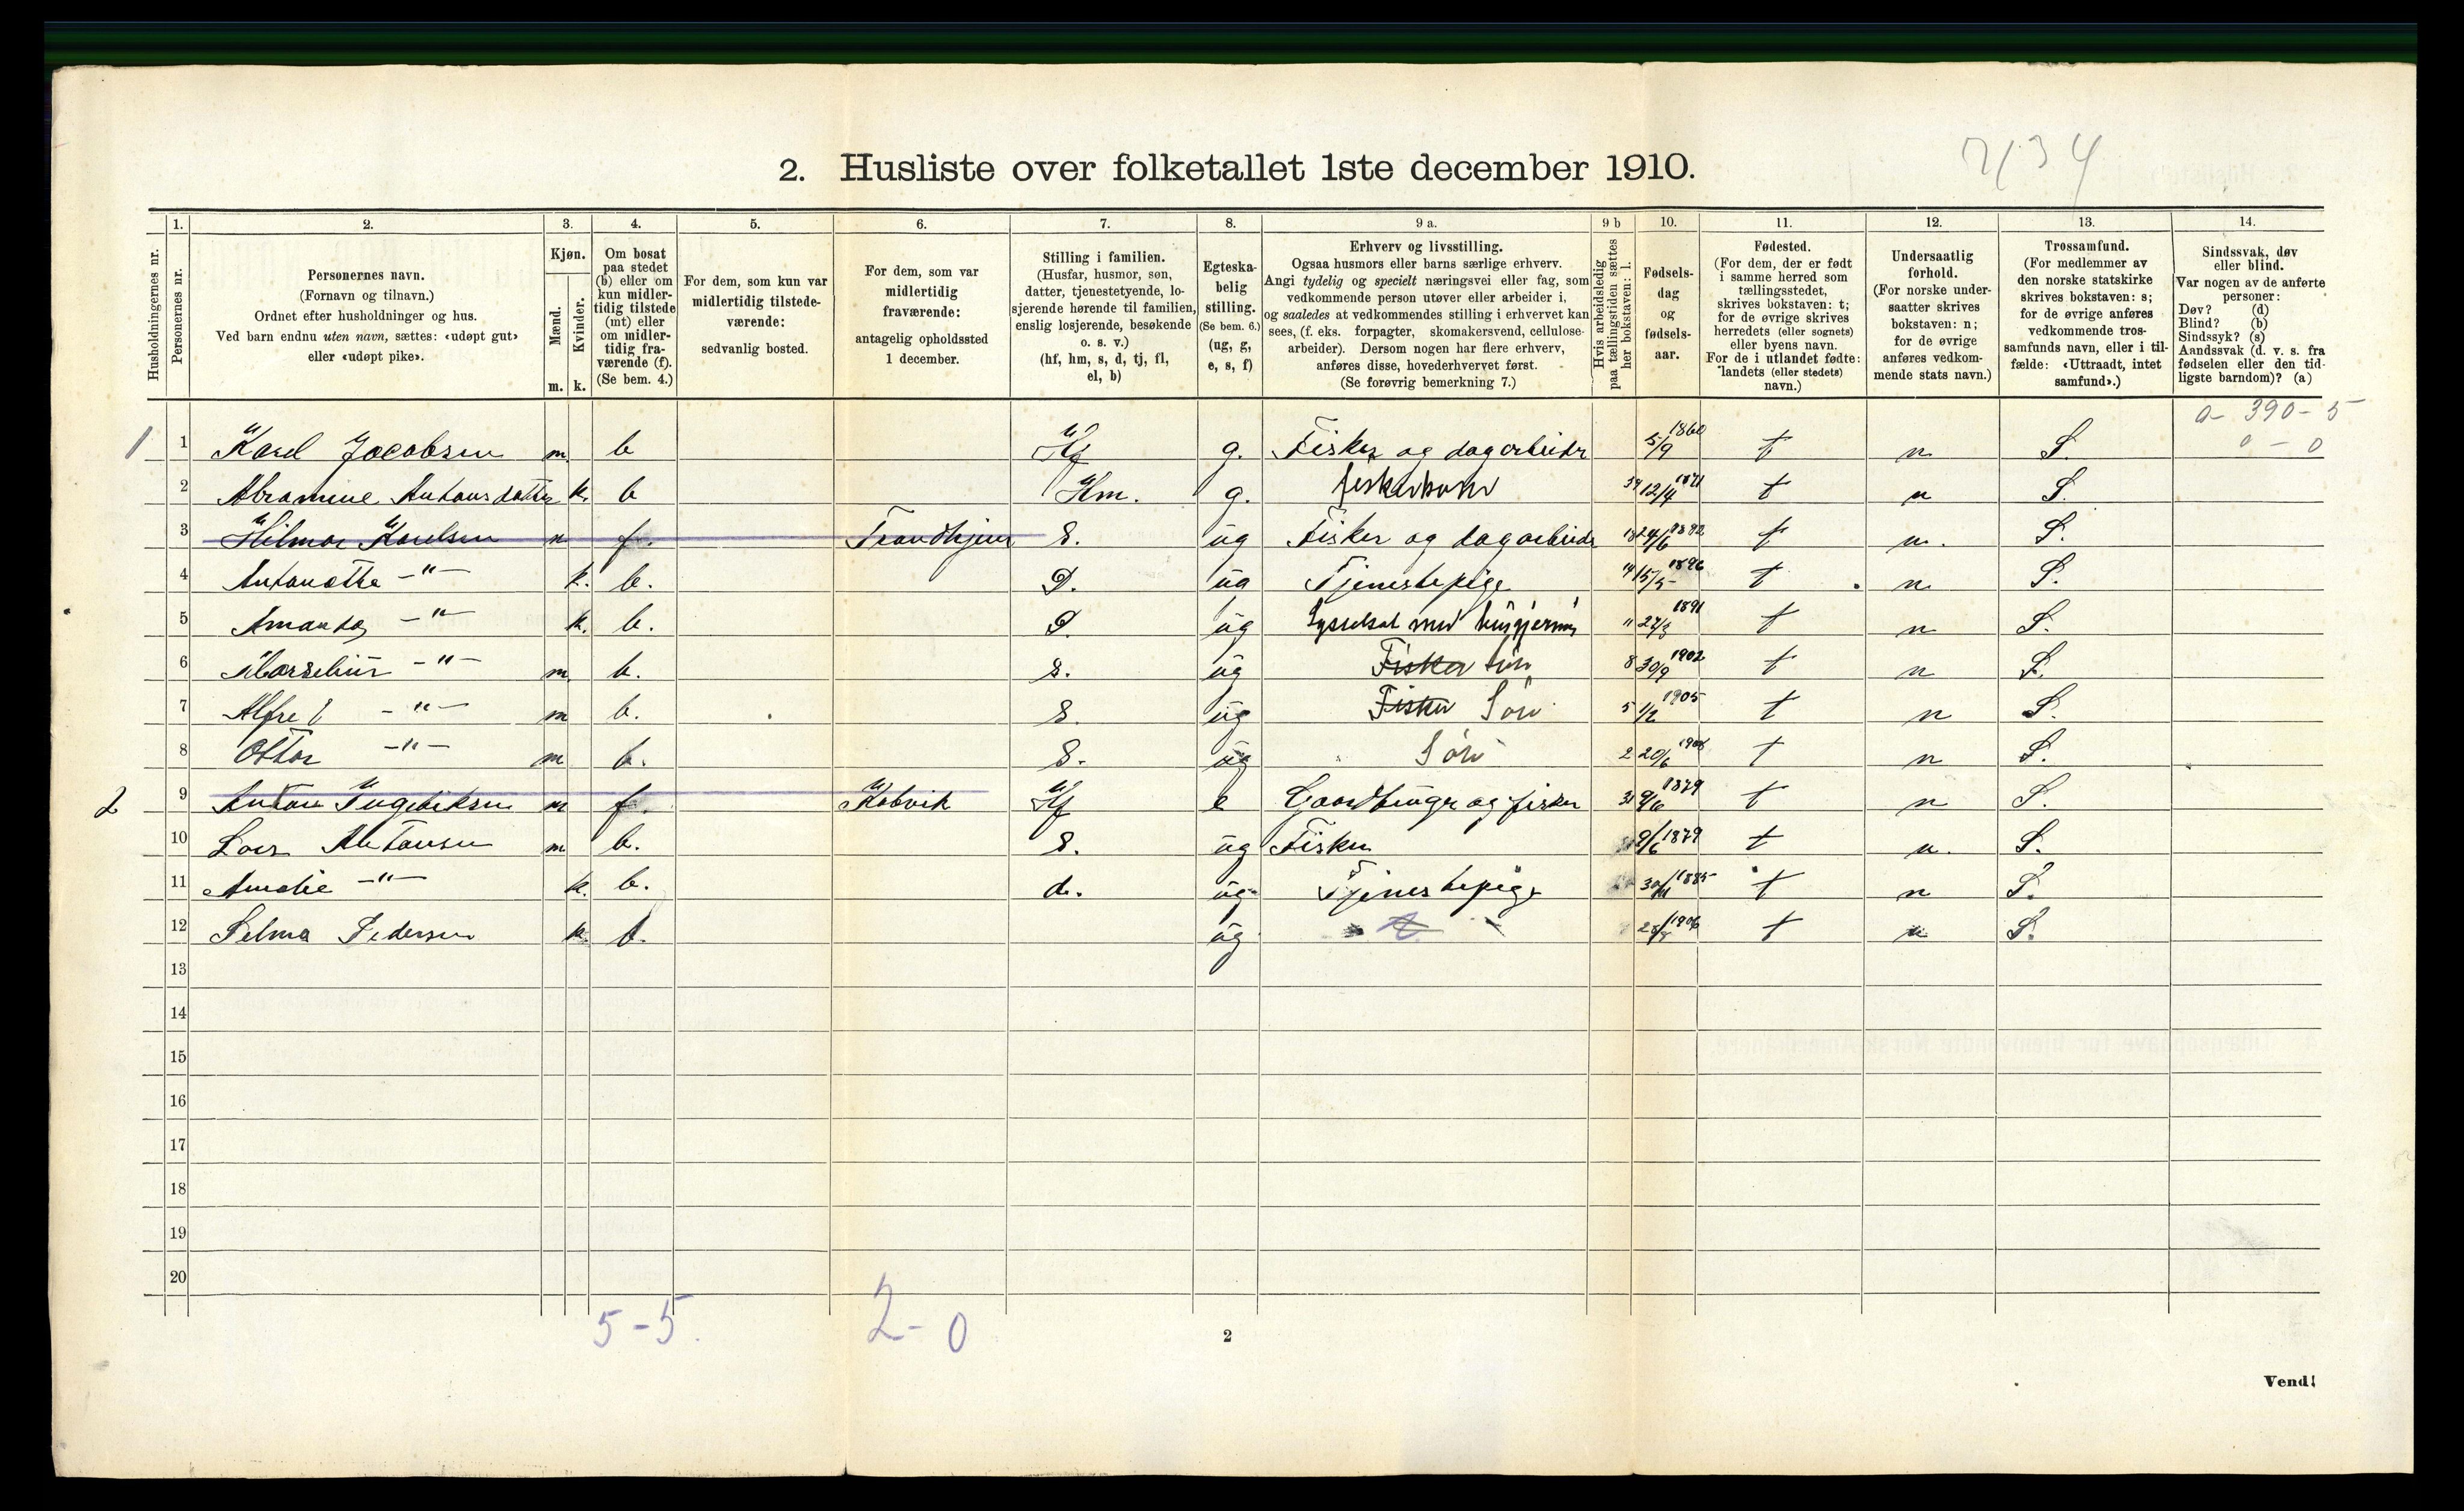 2134
2. Husliste over folketallet 1ste december 1910.
Husholdningernes nr.
1.
Personernes nr.
2.
Personernes navn.
(Fornavn og tilnavn.)
Ordnet efter husholdninger og hus.
Ved barn endnu uten navn, sættes: «udøpt gut»
eller «udøpt pike».
3.
Kjøn.
Mænd.
Kvinder.
m. k.
4.
Om bosat
paa stedet
(b) eller om
kun midler-
tidig tilstede
(mt) eller
om midler-
tidig fra-
værende (f).
(Se bem. 4.)
5.
For dem, som kun var
midlertidig tilstede-
værende:
sedvanlig bosted.
6.
For dem, som var
midlertidig
fraværende:
antagelig opholdssted
1 december.
7.
Stilling i familien.
(Husfar, husmor, søn,
datter, tjenestetyende, lo-
sjerende hørende til familien,
enslig losjerende, besøkende
o. s. v.)
(hf, hm, s, d, tj, fl,
el, b)
8.
Egteska-
belig
stilling.
(Se bem. 6.)
(ug, g,
e, s, f)
9 a.
Erhverv og livsstilling.
Ogsaa husmors eller barns særlige erhverv.
Angi tydelig og specielt næringsvei eller fag, som
vedkommende person utøver eller arbeider i,
og saaledes at vedkommendes stilling i erhvervet kan
sees, (f. eks. forpagter, skomakersvend, cellulose-
arbeider). Dersom nogen har flere erhverv,
anføres disse, hovederhvervet først.
(Se forøvrig bemerkning 7.)
9 b
Hvis arbeidsledig
paa tællingstiden sættes
her bokstaven: l.
10.
Fødsels-
dag
og
fødsels-
aar.
11.
Fødested.
(For dem, der er født
i samme herred som
tællingsstedet,
skrives bokstaven: t;
for de øvrige skrives
herredets (eller sognets)
eller byens navn.
For de i utlandet fødte:
landets (eller stedets)
navn.)
12.
Undersaatlig
forhold.
(For norske under-
saatter skrives
bokstaven: n;
for de øvrige
anføres vedkom-
mende stats navn.)
13.
Trossamfund.
(For medlemmer av
den norske statskirke
skrives bokstaven: s;
for de øvrige anføres
vedkommende tros-
samfunds navn, eller i til-
fælde: «Uttraadt, intet
samfund».)
14.
Sindssvak, døv
eller blind.
Var nogen av de anførte
personer:
Døv? (d)
Blind? (b)
Sindssyk? (s)
Aandssvak (d. v. s. fra
fødselen eller den tid-
ligste barndom)? (a)
0 - 390 - 5
0 - 0
1 1 Karel Jacobsen m. b Hf g. Fisker og dagarbeider 5/9 1860 t n S.
2 Abramine Antonsdatter k. b Hm. g. fiskerkone 12/4 1871 t n S.
3 Hilmar Karelsen m f. Trondhjem S. ug Fisker og dagarbeider 18 24/6 1892 t n. S.
4 Antonette -"- k. b. D. ug Tjenestepige 14 15/5 1896 t n S.
5 Amanda -"- k. b. D. ug Sysselsat med husgjerning 11 27/3 1891 t n S.
6 -"- m. b. s. ug Fisker sön 8 30/9 1902 t n S.
7 Alfred -"- m b. S. ug Fisker Sön 5 1/2 1905 t n S.
8 Ottar -"- m b. S. ug Sön 2 20/6 1908 t n S.
2 9 Anton Ingebriktsen m f. Kobvik Hf e Gaardbruger og fisker 31 9/6 1879 t n S.
10 Lars Antonsen m b. S. ug Fisker 9/6 1879 t n. S.
11 Amalie -"- k. b. d. ug Tjenestepige 30/11 1885 t n S.
12 Selma Pedersen k. b. ug 28/8 1906 t n S.
13
14
15
16
17
18
19
20
5 - 5. 2 - 0
2
Vend!